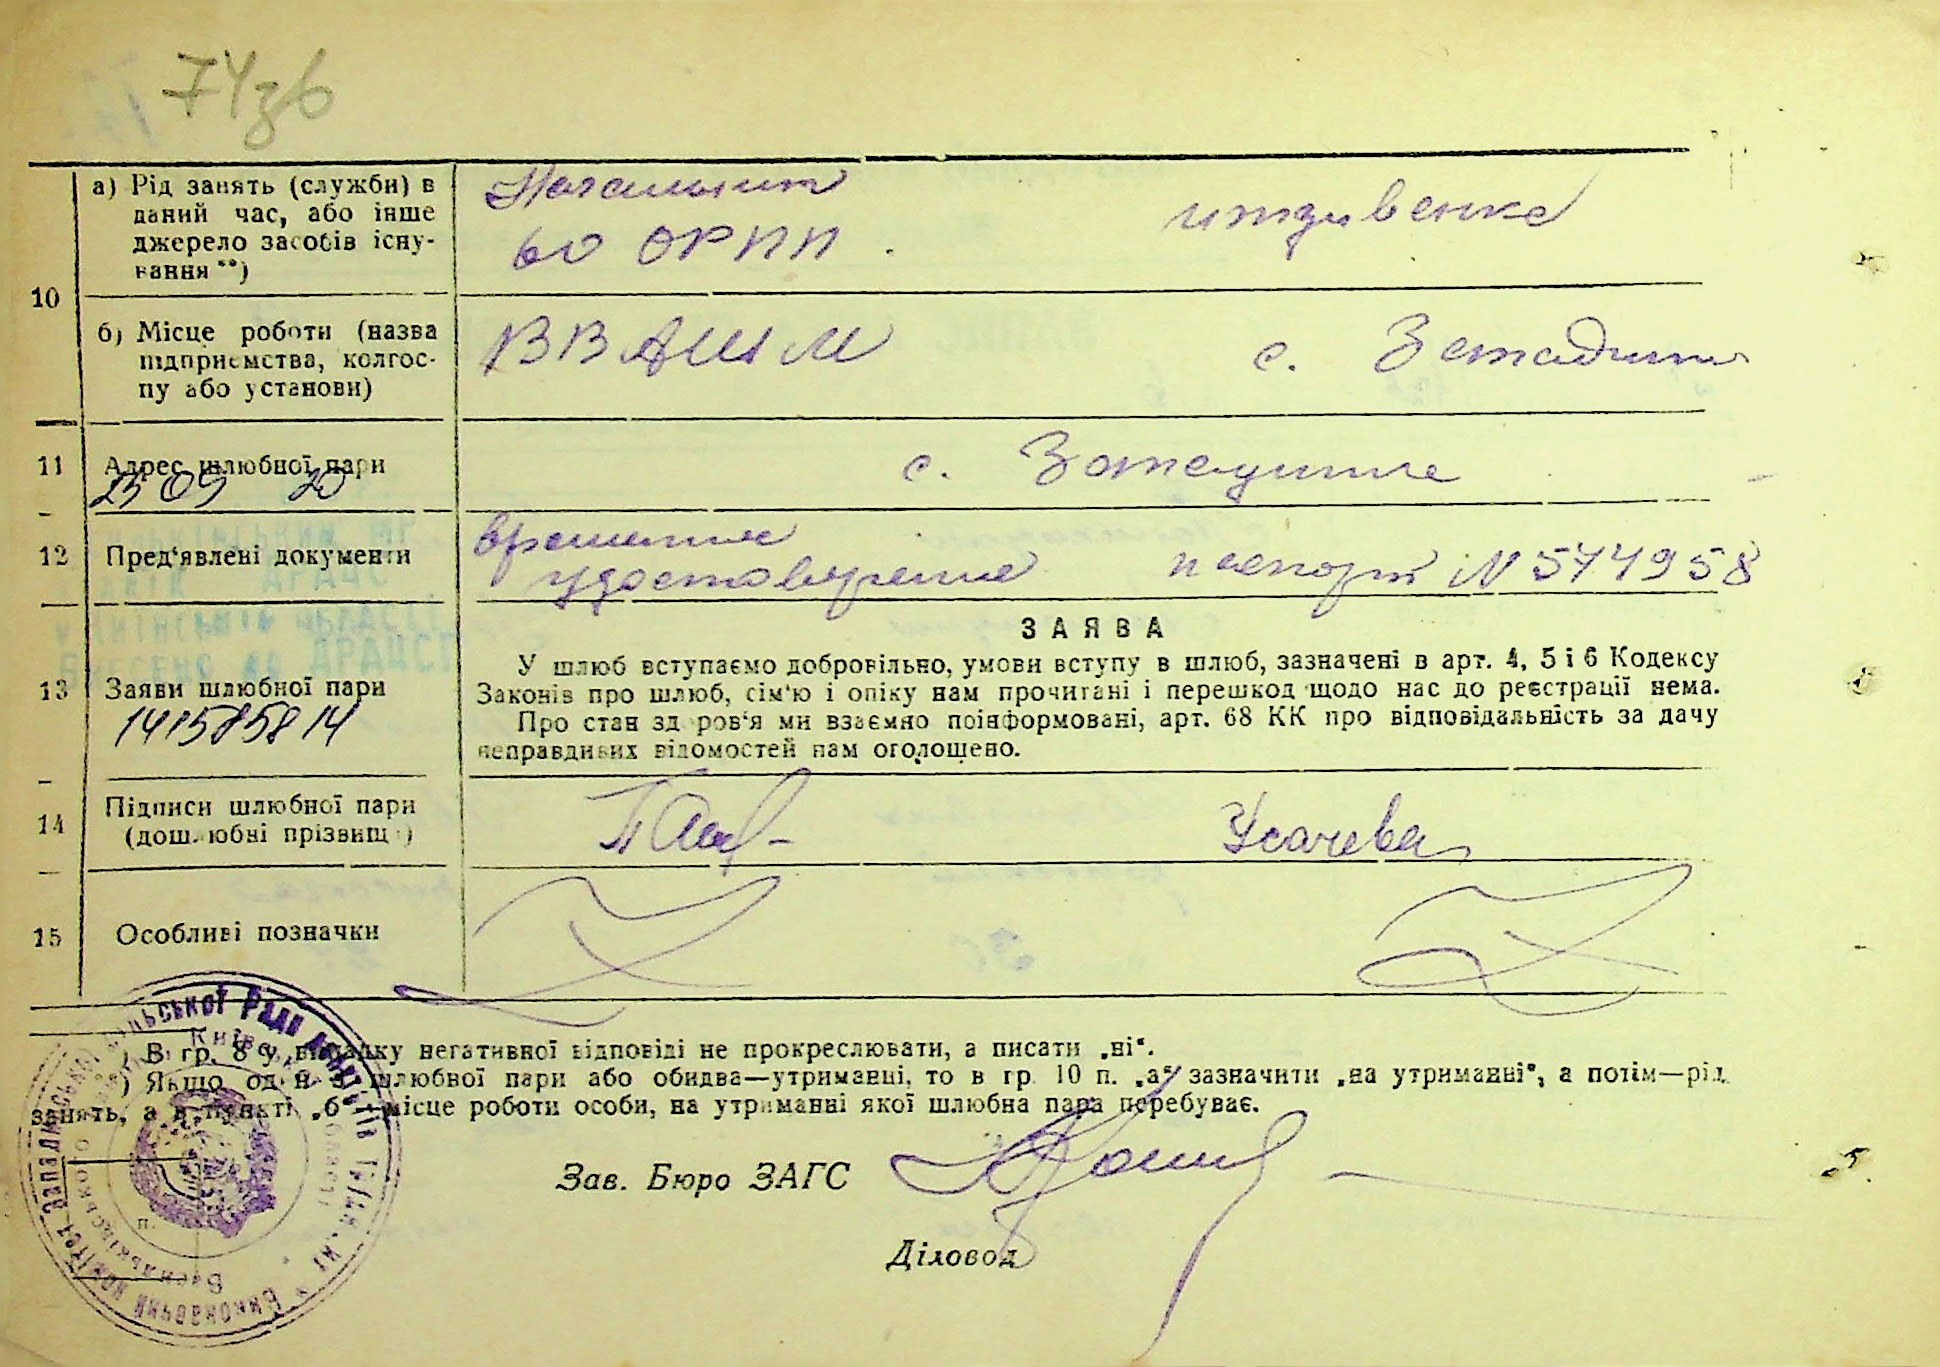 74зв
а) Рід занять (службы) в
даний час, або інше
джерело засобів існу-
вання **)
Начальник
во ОРПП.
иждивенка
10
б) Місце роботи (назва
підприємства, колгос-
пу або установи)
ВВАШМ
с.
11
Адрес шлюбної пари
с.
23 09 20
12
Пред'явлені документи
временное
удостоверение
паспорт N 574958
13
Заяви шлюбної пари
1415858 14
ЗАЯВА
У шлюб вступаємо добровільно, умови вступу в шлюб, зазначені в арт. 4, 5 і 6 Кодексу
Законів про шлюб, сім'ю і опіку нам прочитані і перешкод щодо нас до реєстрації нема.
Про стан здоров'я ми взаємно поінформовані, арт. 68 КК про відповідальність за дачу
неправдивих відомостей нам оголошено.
14
Підписи шлюбної пари
(дошлюбні прізвища)
Усачева
15
Особливі позначки
*) В гр. 8 у випадку негативної відповіді не прокреслювати, а писати „ні“.
**) Якщо один з шлюбної пари або обидва—утриманці, то в гр. 10 п. „а“ зазначити „на утриманні“, а потім—рід
занять, а в пункті „б“ місце роботи особи, на утриманні якої шлюбна пара перебуває.
Зав. Бюро ЗАГС
Діловод